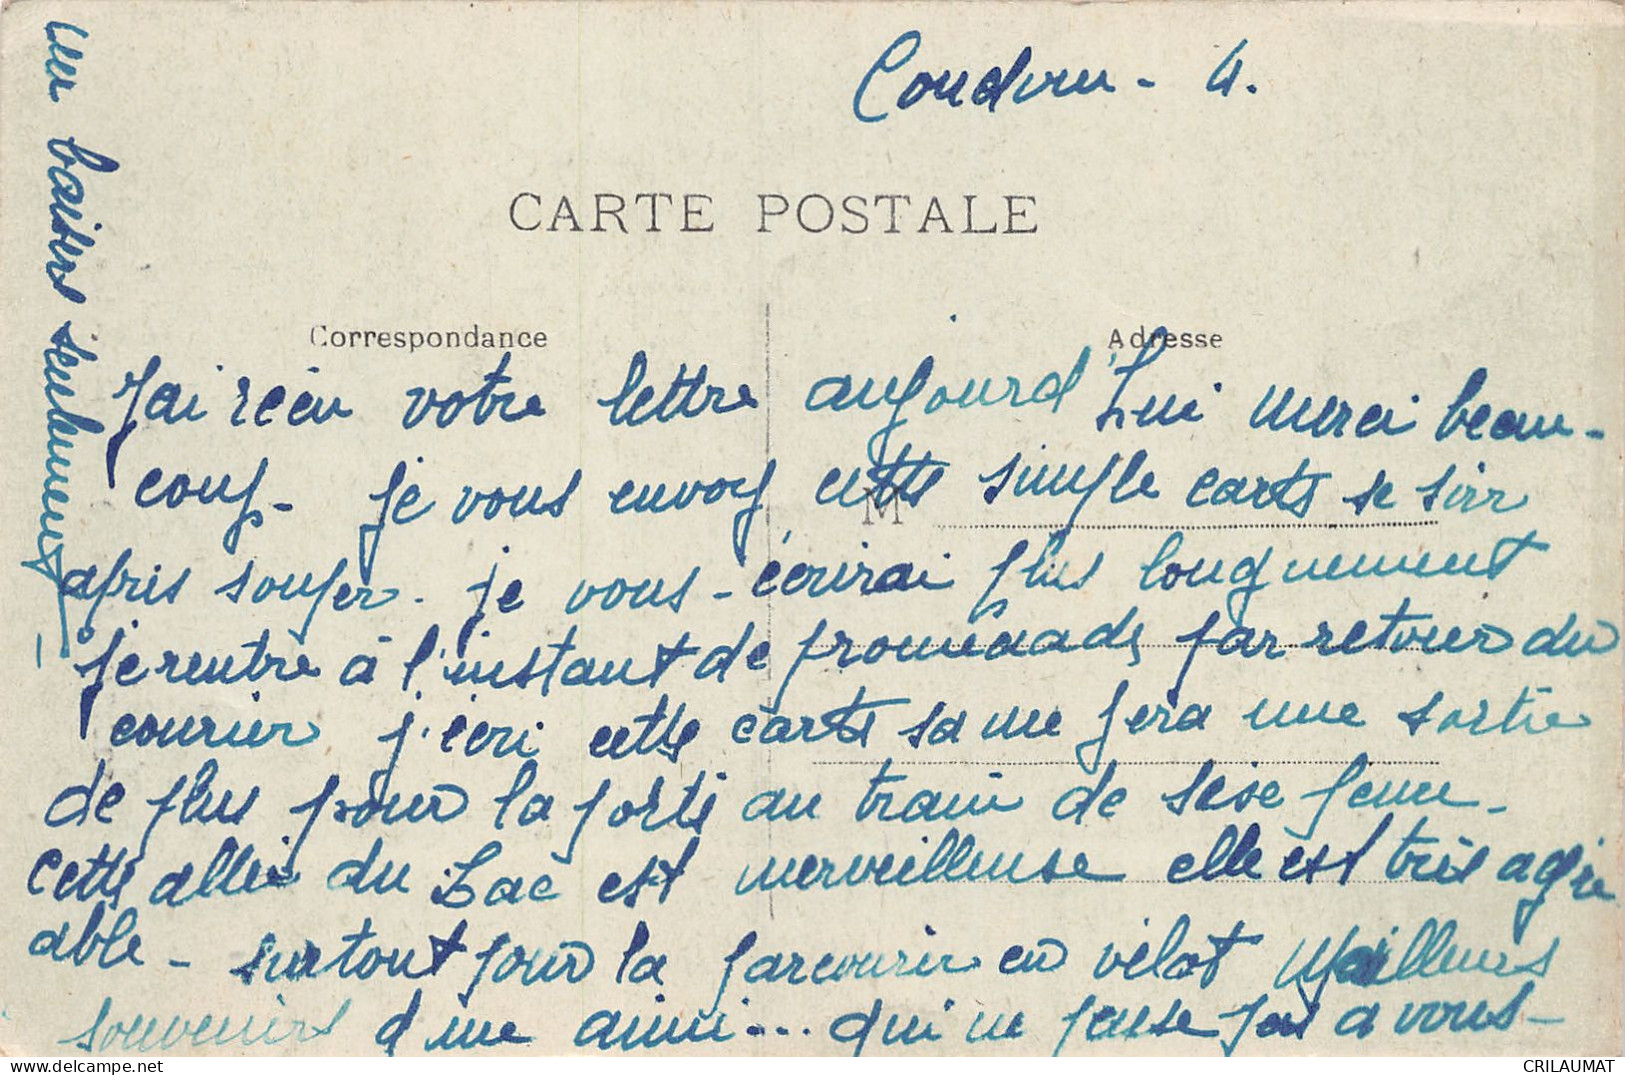 Coudrou - 4.
CARTE POSTALE
Correspondance
Adresse
J'ai recu votre lettre aujourd'hui merci beau-
coup - je vous envoy cette simple carte se soir
M
après souper. je vous - écrirai plus longuement
je rentre à l'instant de promenade, par retour du
courier j'écri cette carte sa me fera une sortie
de plus pour la porté au train de seise heure -
cette allei du Lac est merveilleuse elle est très agré
able - surtout pour la parcourir en vélot Meilleurs
souvenirs d'une amie ... qui ne pense pas a vous -
un baisers seulement -
CRILAUMAT